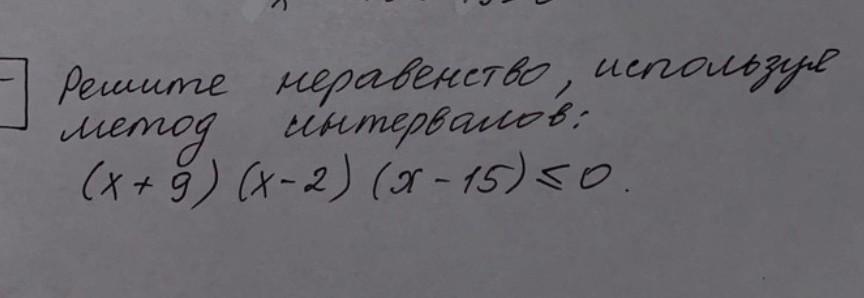 Решите неравенство, используя
метод интервалов:
(x + 9) (x - 2) (x - 15) ≤ 0.